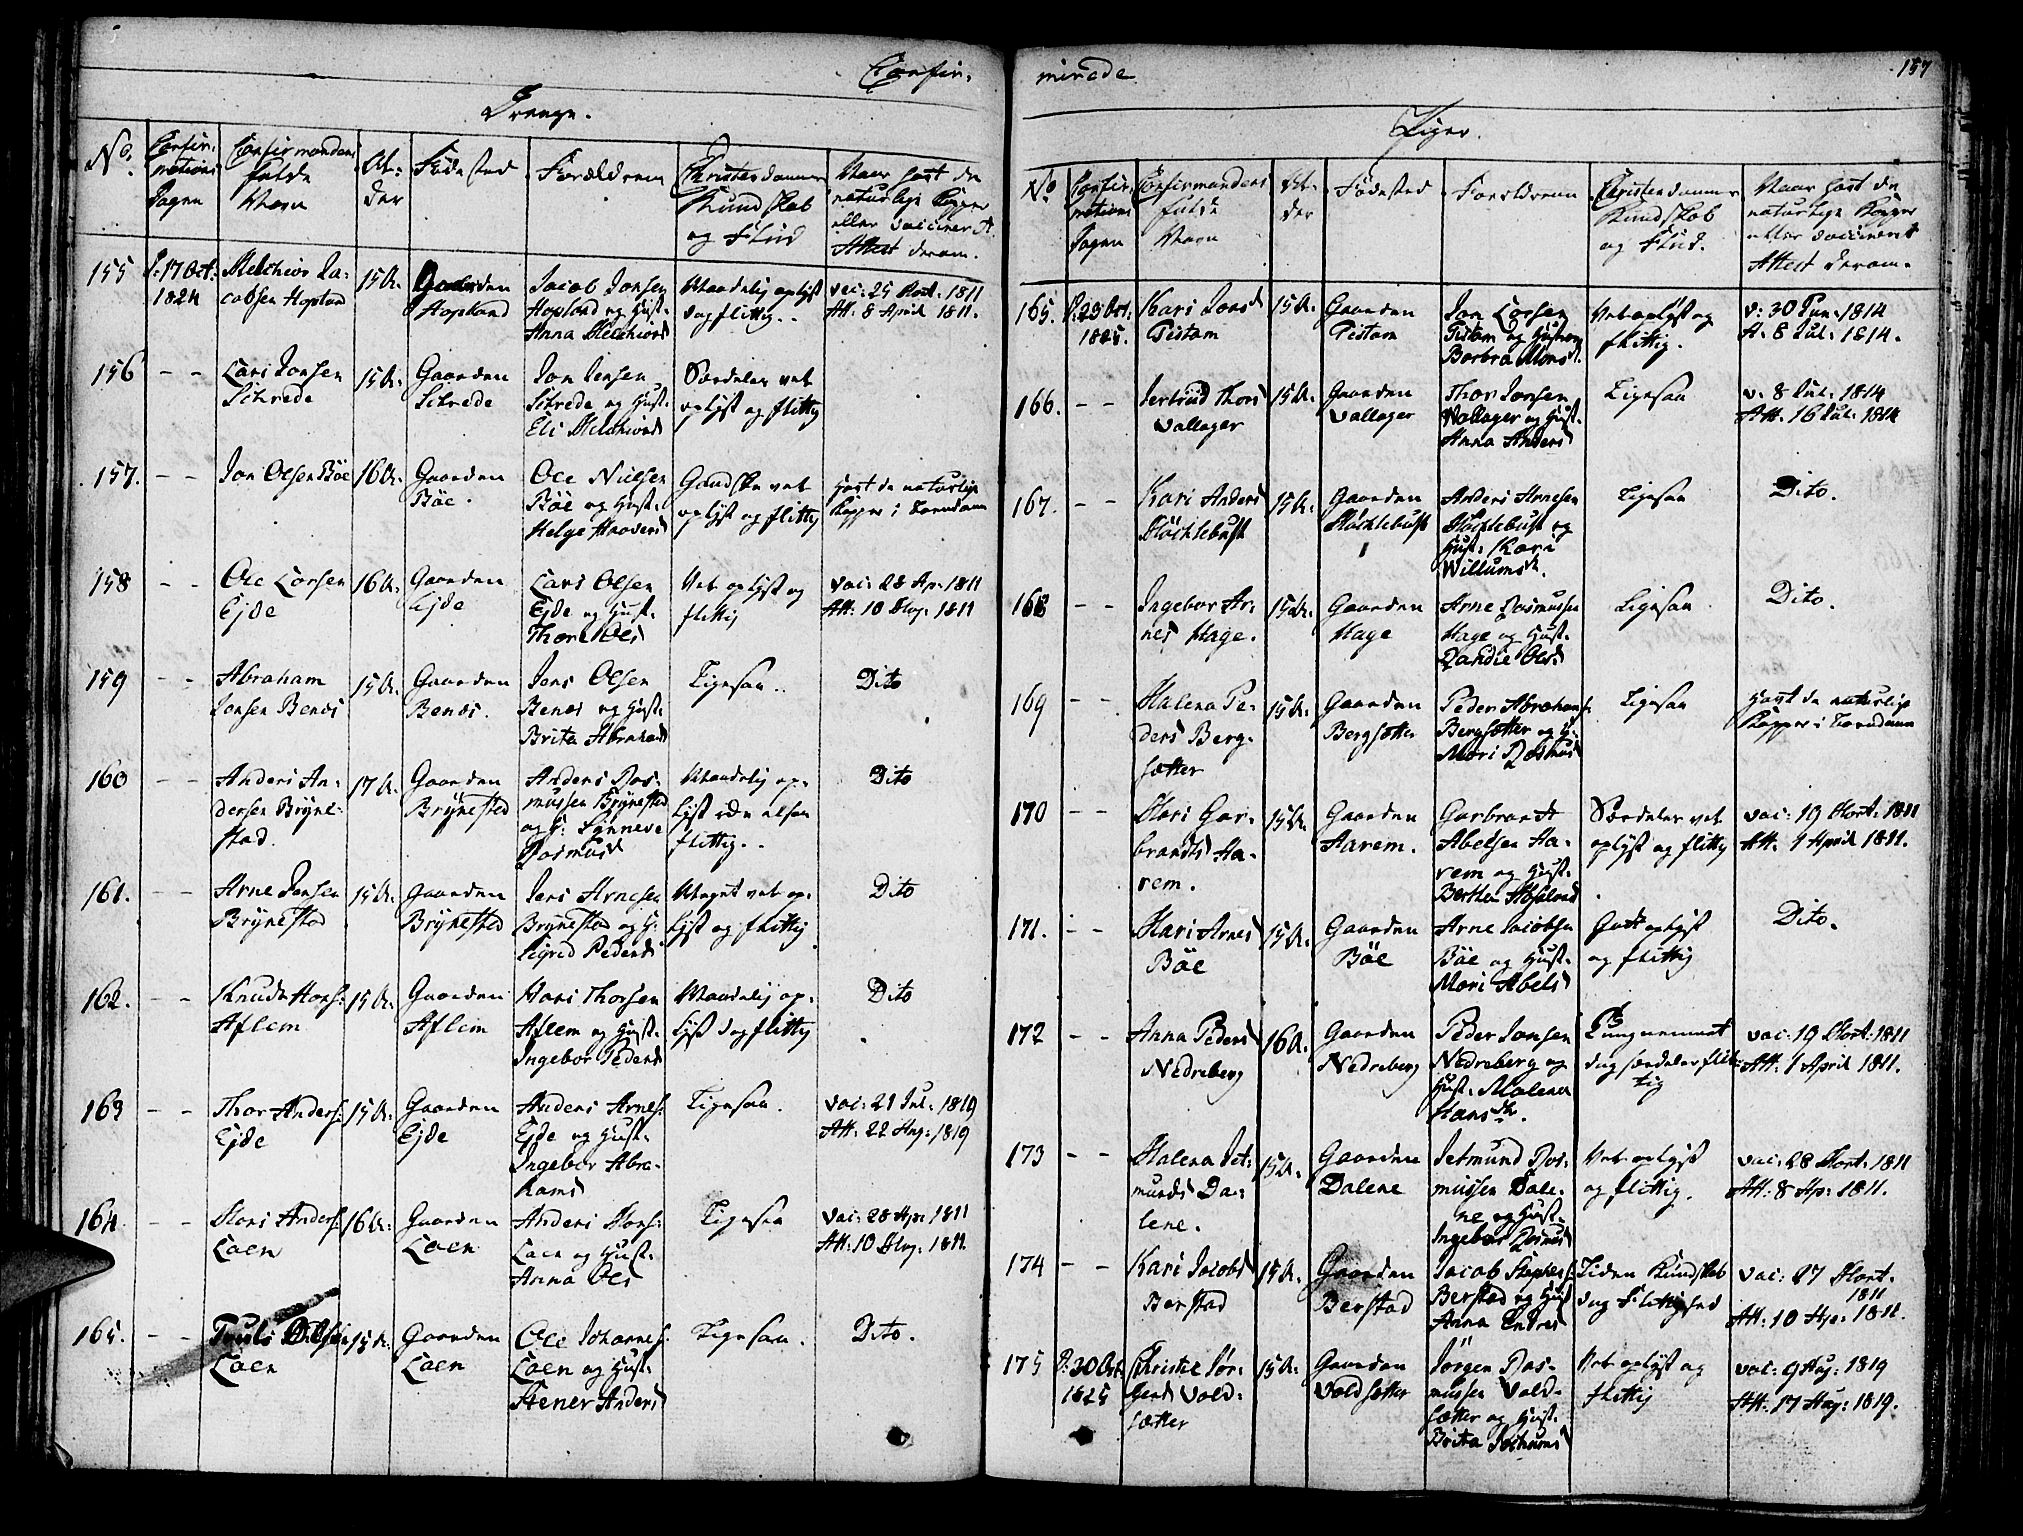 Confir-
Drenge.
No.
Confir-
mations
Dagen
Confirmandens
fulde
Navn
Al-
der
Födested
Forældrene
Christendoms
Kundskab
og Flid
Naar havt de
naturlige Kopper
eller vaccineret
Attest derom.
155
D: 17 Oct:
1824
Melchior Ja-
cobsen Hopland
15 A.
Gaarden
Hopland
Jacob Jonsen
Hopland og Hust.
Anna Melchiors
Maadelig oplyst
dog flittig.
vac: 25 Mart: 1811
Att: 8 April 1811.
156
- -
Lars Jonsen
Sitrede
15 A.
Gaarden
Sitrede
Jon Jensen
Sitrede og Hust.
Eli Melchiors
Særdeles vel
oplyst og flittig
157.
- -
Jon Olsen Böe
16 A.
Gaarden
Böe.
Ole Nielsen
Böe og Hust.
Helge Haavers
Gandske vel
oplyst og flittig
Havt de naturlige
Kopper i Barndom
158
- -
Ole Larsen
Ejde
16 A.
Gaarden
Ejde
Lars Olsen
Ejde og Hust.
Thore Oles
Vel oplyst og
flittig
vac: 28 Ap: 1811
Att: 10 May: 1811
159
- -
Abraham
Jensen Benæs
15 A.
Gaarden
Benæs.
Jens Olsen
Benæs og Hust.
Brita Abrahams
Ligesaa
Dito
160
- -
Anders An-
dersen Bryne-
stad.
17 A.
Gaarden
Brynestad
Anders Ras-
mussen Brynestad
og H: Synneve
Rasmusd
Maadelig op-
lyst
flittig.
Dito
161.
- -
Arne Jensen
Brynestad
15 A.
Gaarden
Brynestad
Jens Arnesen
Brynestad og H:
Sigrid Peders
Meget vel op-
lyst og flittig
Dito
162.
- -
Knudt Hans:
Aflem
15 A.
Gaarden
Aflem
Hans Thorsen
Aflem og Hust.
Ingebor Peders
Maadelig op-
lyst dog flittig
Dito
163
- -
Thor Anders:
Ejde
15 A.
Gaarden
Ejde
Anders Arnes:
Ejde og Hust.
Ingebor Abra-
hams
Ligesaa.
vac: 21 Jul: 1819
Att: 22 Aug: 1819
164.
- -
Mons Anders:
Loen
16 A.
Gaarden
Loen
Anders Mons:
Loen og Hust.
Anna Oles
Ligesaa
vac: 28 Ap: 1811
Att: 10 May: 1811.
165.
- -
Loen
15 A.
Gaarden
Loen
Ole Johannes:
Loen og Hust.
Stener Anders
Ligesaa.
Dito.
mirede
157
Piger.
No
Confir-
mations
Dagen
Confirmandens
fulde
Navn
Al-
der
Födested
Forældrene
Christendoms
Kundskab
og Flid.
Naar havt de
naturlige Kopper
eller vaccineret
Attest derom.
165.
Kari Jonsd
Tistam
15 A.
Gaarden
Tistam
Jon Larsen
Tistam og Hustrue
Barbra Monsd.
Vel oplyst og
flittig.
v: 30 Jun: 1814
A: 8 Jul: 1814.
166.
- -
Jertrud Thors
Vallager
15 A.
Gaarden
Vallager
Thor Jonsen
Vallager og Hust.
Anna Anders
Ligesaa
v. 8 Jul: 1814
Att: 16 Jul: 1814
167.
- -
Kari Anders
Möcklebust
15 A.
Gaarden
Möcklebust
Anders Arnesen
Möcklebust og
Hust: Kari
Willumsd.
Ligesaa
Dito.
168
- -
Ingebor Ar-
nes Hage.
15 A.
Gaarden
Hage
Arne Rasmussen
Hage og Hust.
Randie Oles
Ligesaa
Dito.
169
- -
Malena Pe-
ders Berg-
sætter
15 A.
Gaarden
Bergsætter
Peder Abrahams:
Bergsætter og H:
Mari Rasmus
Ligesaa
Havt de naturlige
Kopper i Barndom
170
- -
Mari Gar-
brandts Aa-
rem.
15 A.
Gaarden
Aarem.
Garbrandt
Abelsen Aa-
rem og Hust.
Berthe Absalons
Særdeles vel
oplyst og flittig
vac: 19 Mart: 1811
Att: 1 April 1811.
171.
- -
Mari Arnes
Böe
15 A.
Gaarden
Böe
Arne Jacobsen
Böe og Hust.
Mari Abels
Godt oplyst
og flittig
Dito.
172
- -
Anna Peders
Nedreberg
16 A.
Gaarden
Nedreberg
Peder Jonsen
Nedreberg og
Hust. Malene
Hansdtr.
Tungnemmet
dog særdeles flit-
tig
vac: 19 Mart: 1811
Att. 1 April 1811.
173
- -
Malena Jet-
munds Da-
lene.
15 A.
Gaarden
Dalene
Jetmund Ras-
mussen Dale-
ne og Hust.
Ingebor Rasmus
Vel oplyst
og flittig.
vac: 28 Mart: 1811
Att: 8 Ap: 1811.
174
- -
Kari Jacobs
Berstad
15 A.
Gaarden
Berstad
Jacob Stephens:
Berstad og Hust
Anna Endres
Liden Kundskab
dog Flittighed
vac: 27 Mart.
1811
Att: 10 Apr: 1811.
175
D: 30 Oct.
1825
Christie Jör-
gens Vold-
sætter
15 A.
Gaarden
Voldsætter
Jörgen Ras-
mussen Vold-
sætter og Hust.
Brita Jochums
Vel oplyst og
flittig
vac: 9 Aug: 1819
Att: 17 Aug: 1819.